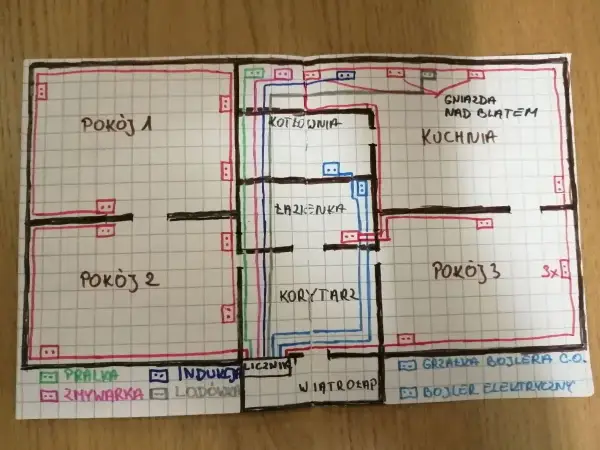 POKÓJ 1
KOTŁOWNIA
GNIAZDA
NAD BLATEM
KUCHNIA
ŁAZIENKA
POKÓJ 2
KORYTARZ
POKÓJ 3
3x
LICZNIK
WIATROŁAP
PRALKA
INDUKCJA
ZMYWARKA
LODÓWKA
GRZAŁKA BOJLERA C.O.
BOJLER ELEKTRYCZNY